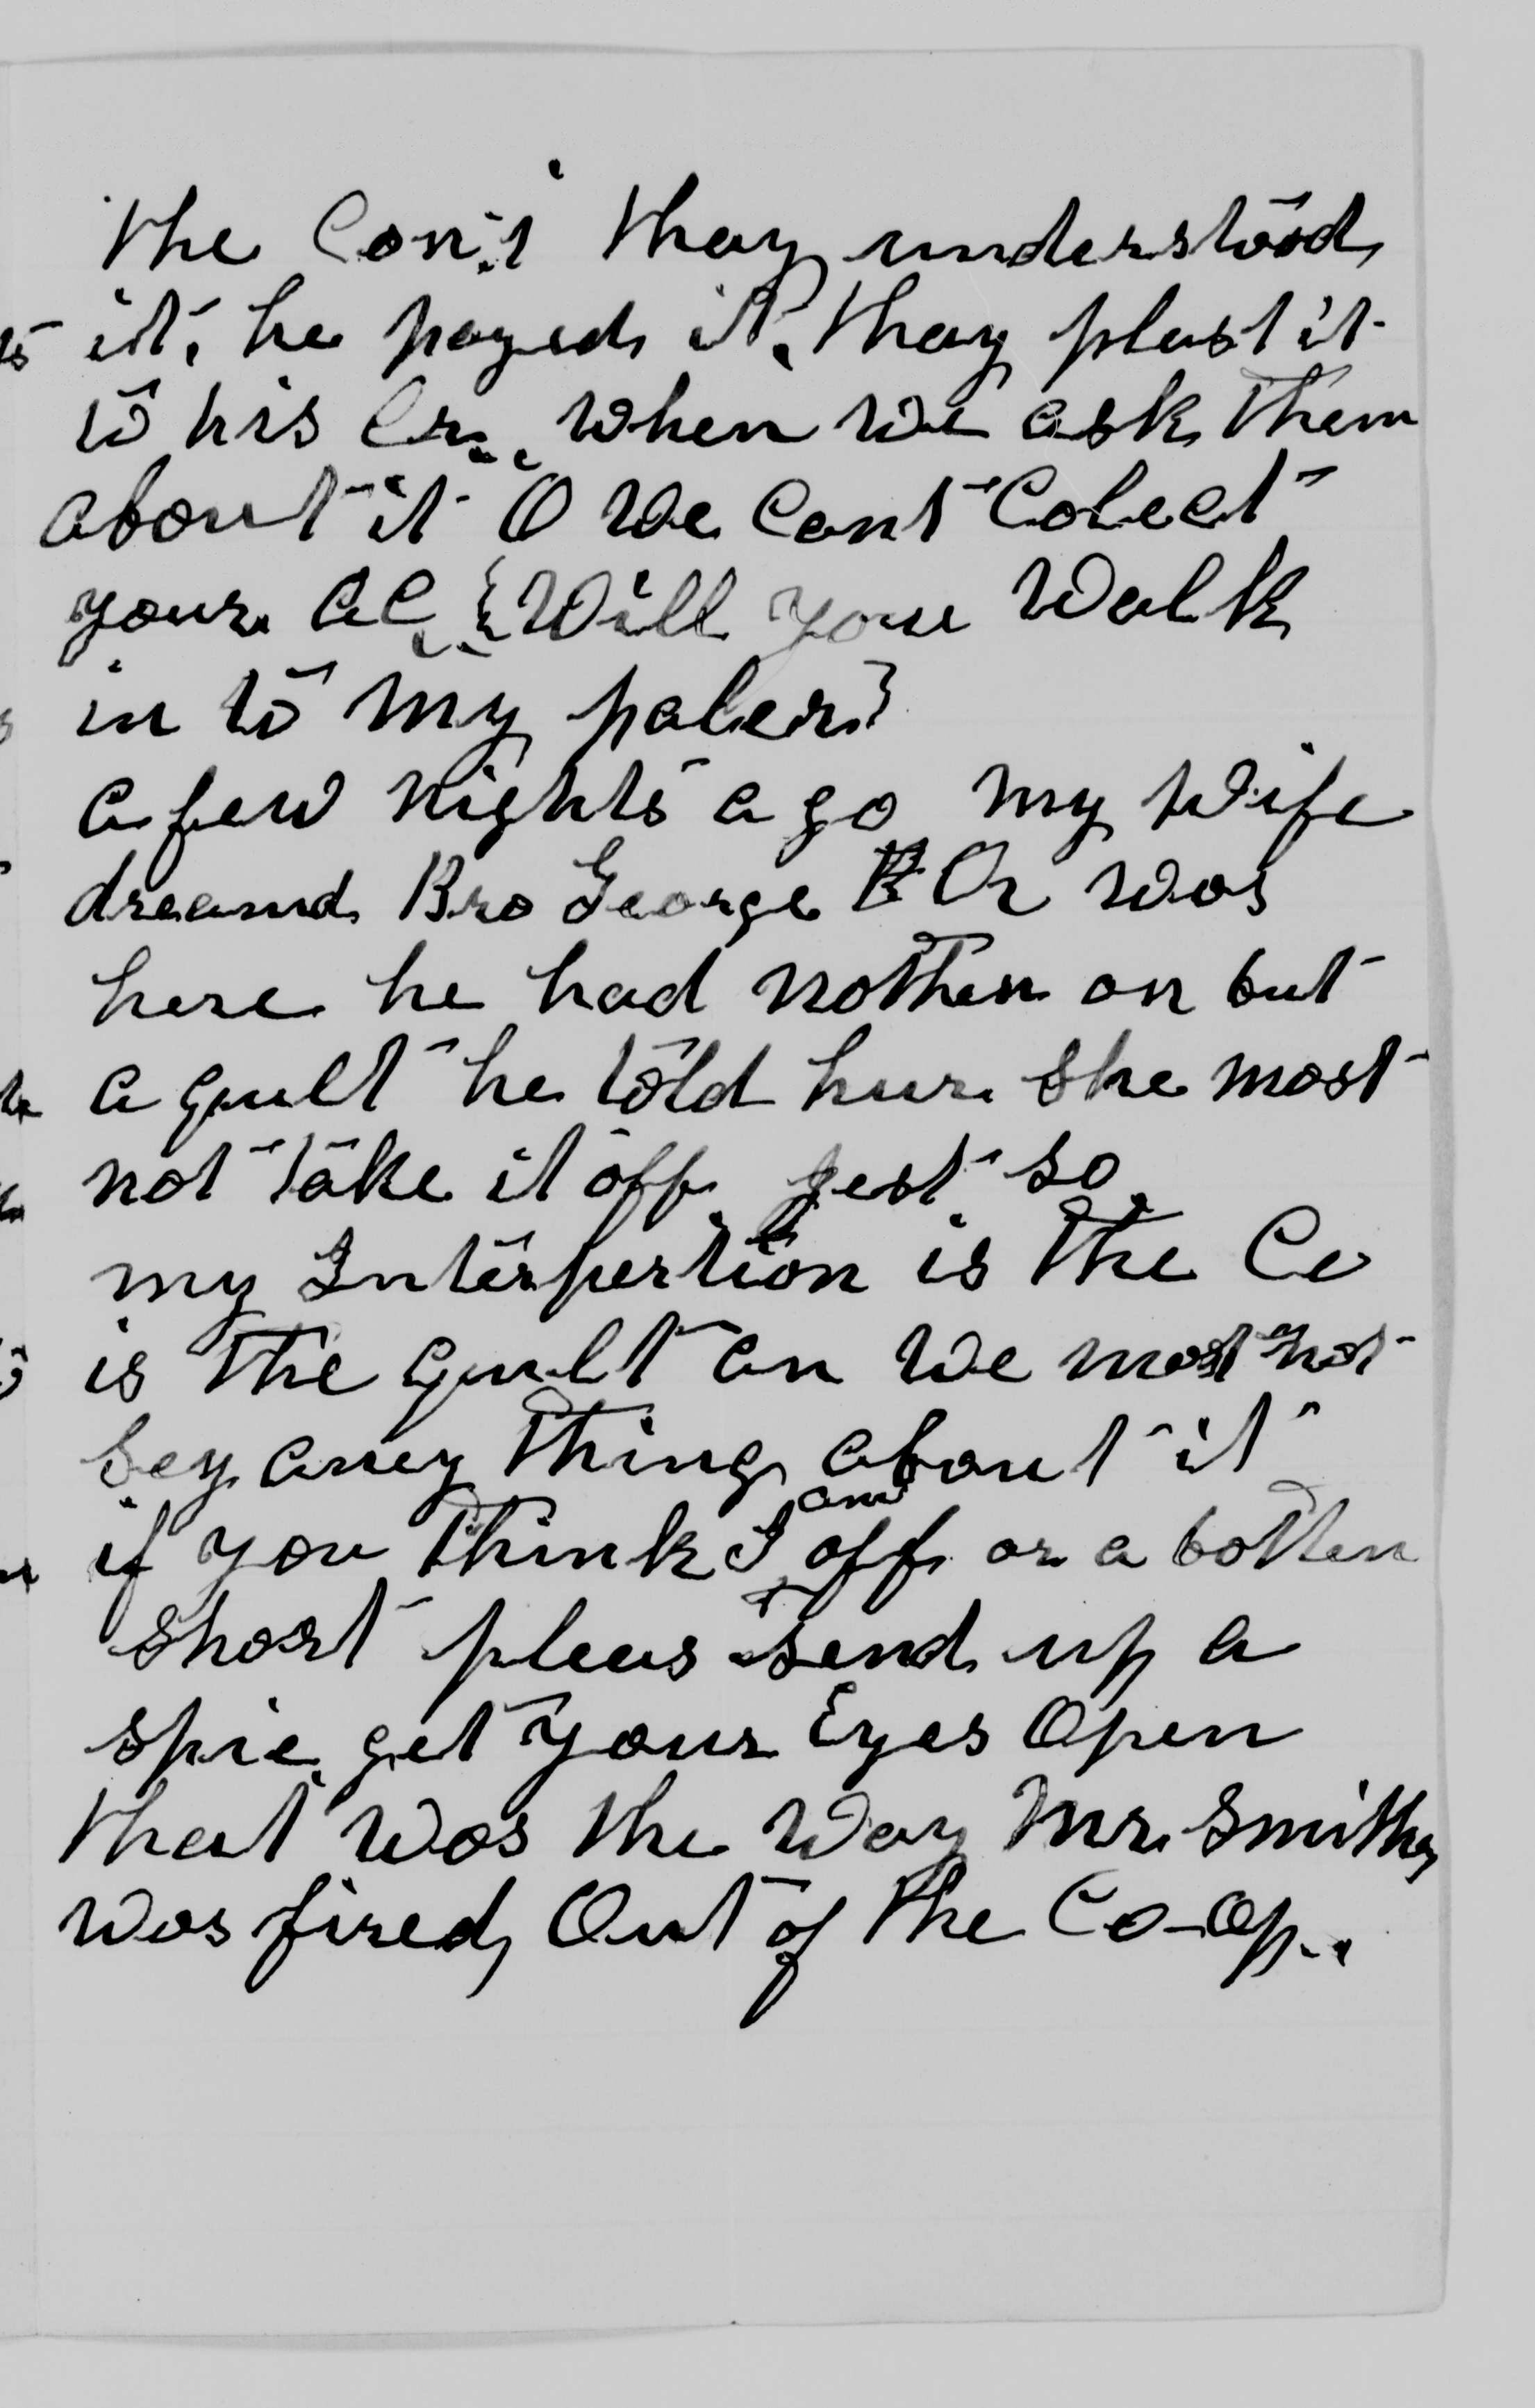 the Con't thay understood
it, he payed it, thay plast it
to his Cr., when we ask them
about it O we cant Colect
your ac, {Will you Walk
in to my paler}
a few nights a go my wife
dreamd Bro George Q was
here he had nothen on but
a quilt he told hur she most
not take it off jest so
my Interpertion is the Co
is the quilt an we most not
sey aney thing about it
if you think I am off or a botten
short pleas send up a
spie, get your Eyes Open
that was the way Mr. Smithy
was fired Out of the Co-op..